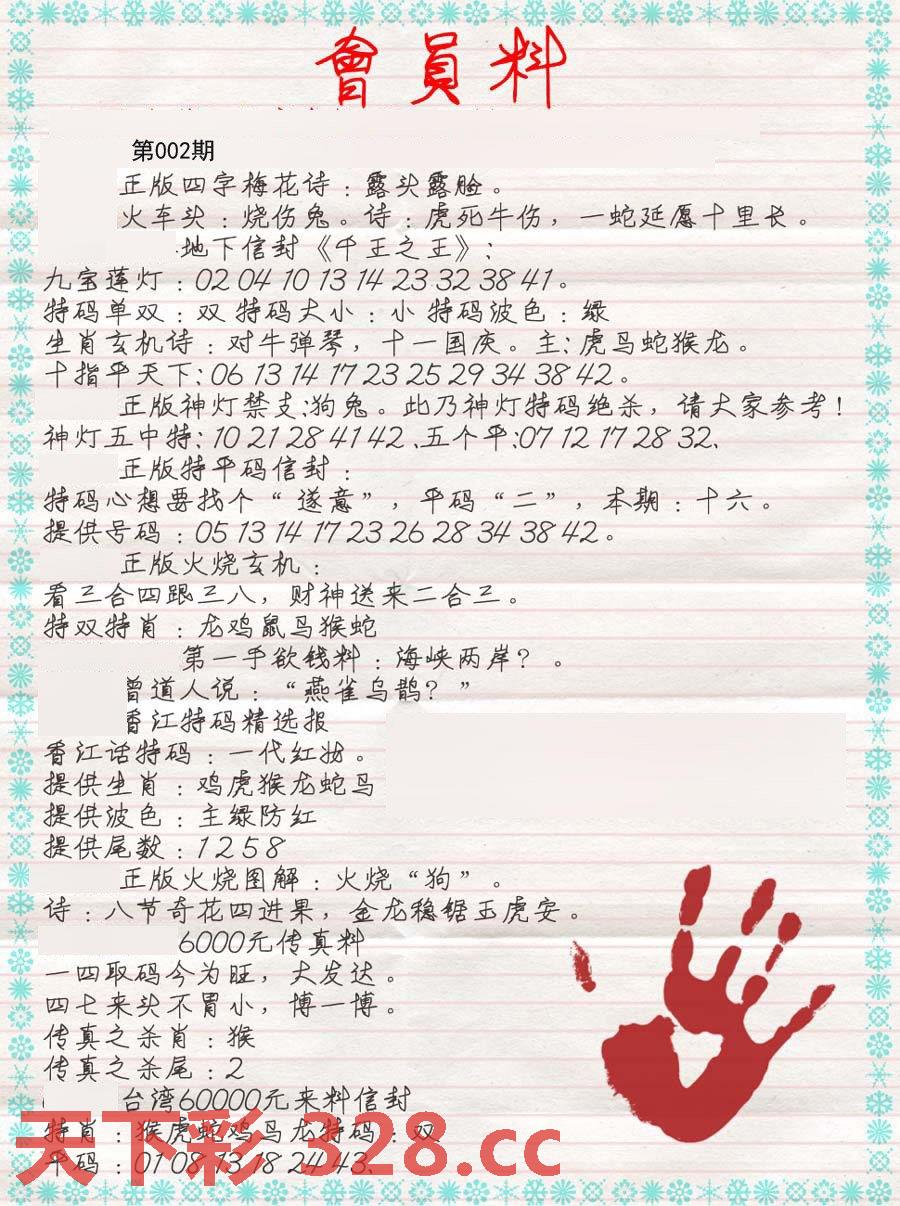 會員料
第002期
正版四字梅花诗：露头露脸。
火车头：烧伤兔。诗：虎死牛伤，一蛇延愿十里长。
地下信封《千王之王》：
九宝莲灯：02 04 10 13 14 23 32 38 41。
特码单双：双 特码大小：小 特码波色：绿
生肖玄机诗：对牛弹琴，十一国庆。主：虎马蛇猴龙。
十指平天下：06 13 14 17 23 25 29 34 38 42。
正版神灯禁支：狗兔。此乃神灯特码绝杀，请大家参考！
神灯五中特：10 21 28 41 42、五个平：07 12 17 28 32、
正版特平码信封：
特码心想要找个“遂意”，平码“二”，本期：十六。
提供号码：05 13 14 17 23 26 28 34 38 42。
正版火烧玄机：
看三合四跟三八，财神送来二合三。
特双特肖：龙鸡鼠马猴蛇
第一手欲钱料：海峡两岸？。
曾道人说：“燕雀乌鹊？”
香江特码精选报
香江话特码：一代红妆。
提供生肖：鸡虎猴龙蛇马
提供波色：主绿防红
提供尾数：1 2 5 8
正版火烧图解：火烧“狗”。
诗：八节奇花四进果，金龙稳锯玉虎安。
6000元传真料
一四取码今为旺，大发达。
四七来头不冒小，博一博。
传真之杀肖：猴
传真之杀尾：2
台湾60000元来料信封
特肖：猴虎蛇鸡马龙特码：双
平码：01 08 13 18 24 43、
天下彩 328.cc